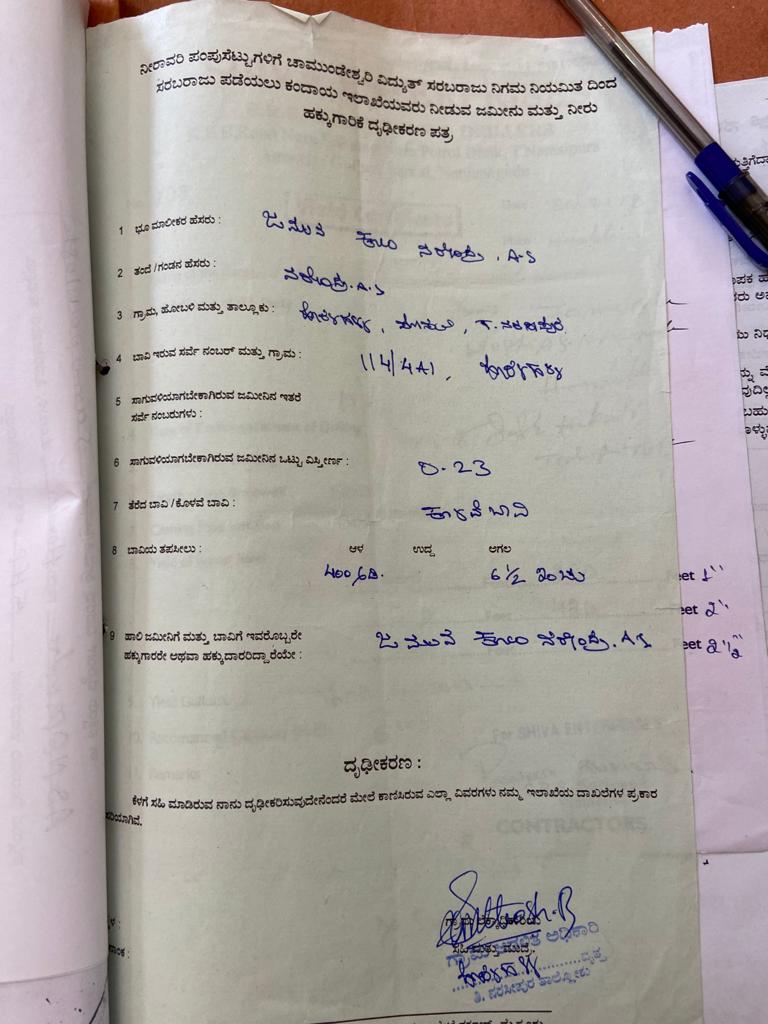 ನೀರಾವರಿ ಪಂಪುಸೆಟ್ಟುಗಳಿಗೆ ಚಾಮುಂಡೇಶ್ವರಿ ವಿದ್ಯುತ್ ಸರಬರಾಜು ನಿಗಮ ನಿಯಮಿತ ದಿಂದ
ಸರಬರಾಜು ಪಡೆಯಲು ಕಂದಾಯ ಇಲಾಖೆಯವರು ನೀಡುವ ಜಮೀನು ಮತ್ತು ನೀರು
ಹಕ್ಕುಗಾರಿಕೆ ದೃಢೀಕರಣ ಪತ್ರ
1 ಭೂ ಮಾಲೀಕರ ಹೆಸರು : ಜಮುನ ಕೋಂ ನರೇಂದ್ರ. A.S
2 ತಂದೆ /ಗಂಡನ ಹೆಸರು : ನರೇಂದ್ರ. A.S
3 ಗ್ರಾಮ, ಹೋಬಳಿ ಮತ್ತು ತಾಲ್ಲೂಕು :
4 ಬಾವಿ ಇರುವ ಸರ್ವೆ ನಂಬರ್ ಮತ್ತು ಗ್ರಾಮ : 114/4A1,
5 ಸಾಗುವಳಿಯಾಗಬೇಕಾಗಿರುವ ಜಮೀನಿನ ಇತರೆ
ಸರ್ವೆ ನಂಬರುಗಳು :
6 ಸಾಗುವಳಿಯಾಗಬೇಕಾಗಿರುವ ಜಮೀನಿನ ಒಟ್ಟು ವಿಸ್ತೀರ್ಣ : 0-23
7 ತೆರೆದ ಬಾವಿ / ಕೊಳವೆ ಬಾವಿ : ಕೊಳವೆ ಬಾವಿ
8 ಬಾವಿಯ ತಪಸೀಲು : ಆಳ ಉದ್ದ ಅಗಲ
400 ಅಡಿ. 6 1/2 ಇಂಚು
eet 1"
eet 2"
9 ಹಾಲಿ ಜಮೀನಿಗೆ ಮತ್ತು ಬಾವಿಗೆ ಇವರೊಬ್ಬರೇ ಜಮುನ ಕೋಂ ನರೇಂದ್ರ. A.S
ಹಕ್ಕುಗಾರರೇ ಅಥವಾ ಹಕ್ಕುದಾರರಿದ್ದಾರೆಯೇ :
eet 2 1/2"
ದೃಢೀಕರಣ :
ಕೆಳಗೆ ಸಹಿ ಮಾಡಿರುವ ನಾನು ದೃಢೀಕರಿಸುವುದೇನೆಂದರೆ ಮೇಲೆ ಕಾಣಿಸಿರುವ ಎಲ್ಲಾ ವಿವರಗಳು ನಮ್ಮ ಇಲಾಖೆಯ ದಾಖಲೆಗಳ ಪ್ರಕಾರ
ಸರಿಯಾಗಿವೆ.
ಸಹಿ ಮತ್ತು ಮುದ್ರೆ
ಗ್ರಾಮ ಆಡಳಿತ ಅಧಿಕಾರಿ
ವೃತ್ತ
ತಿ. ನರಸೀಪುರ ತಾಲ್ಲೂಕು